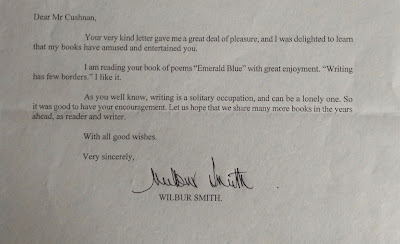 Dear Mr Cushnan,
Your very kind letter gave me a great deal of pleasure, and I was delighted to learn
that my books have amused and entertained you.
I am reading your book of poems “Emerald Blue” with great enjoyment. “Writing
has few borders.” I like it.
As you well know, writing is a solitary occupation, and can be a lonely one. So
it was good to have your encouragement. Let us hope that we share many more books in the years
ahead, as reader and writer.
With all good wishes.
Very sincerely,
Wilbur Smith
WILBUR SMITH.